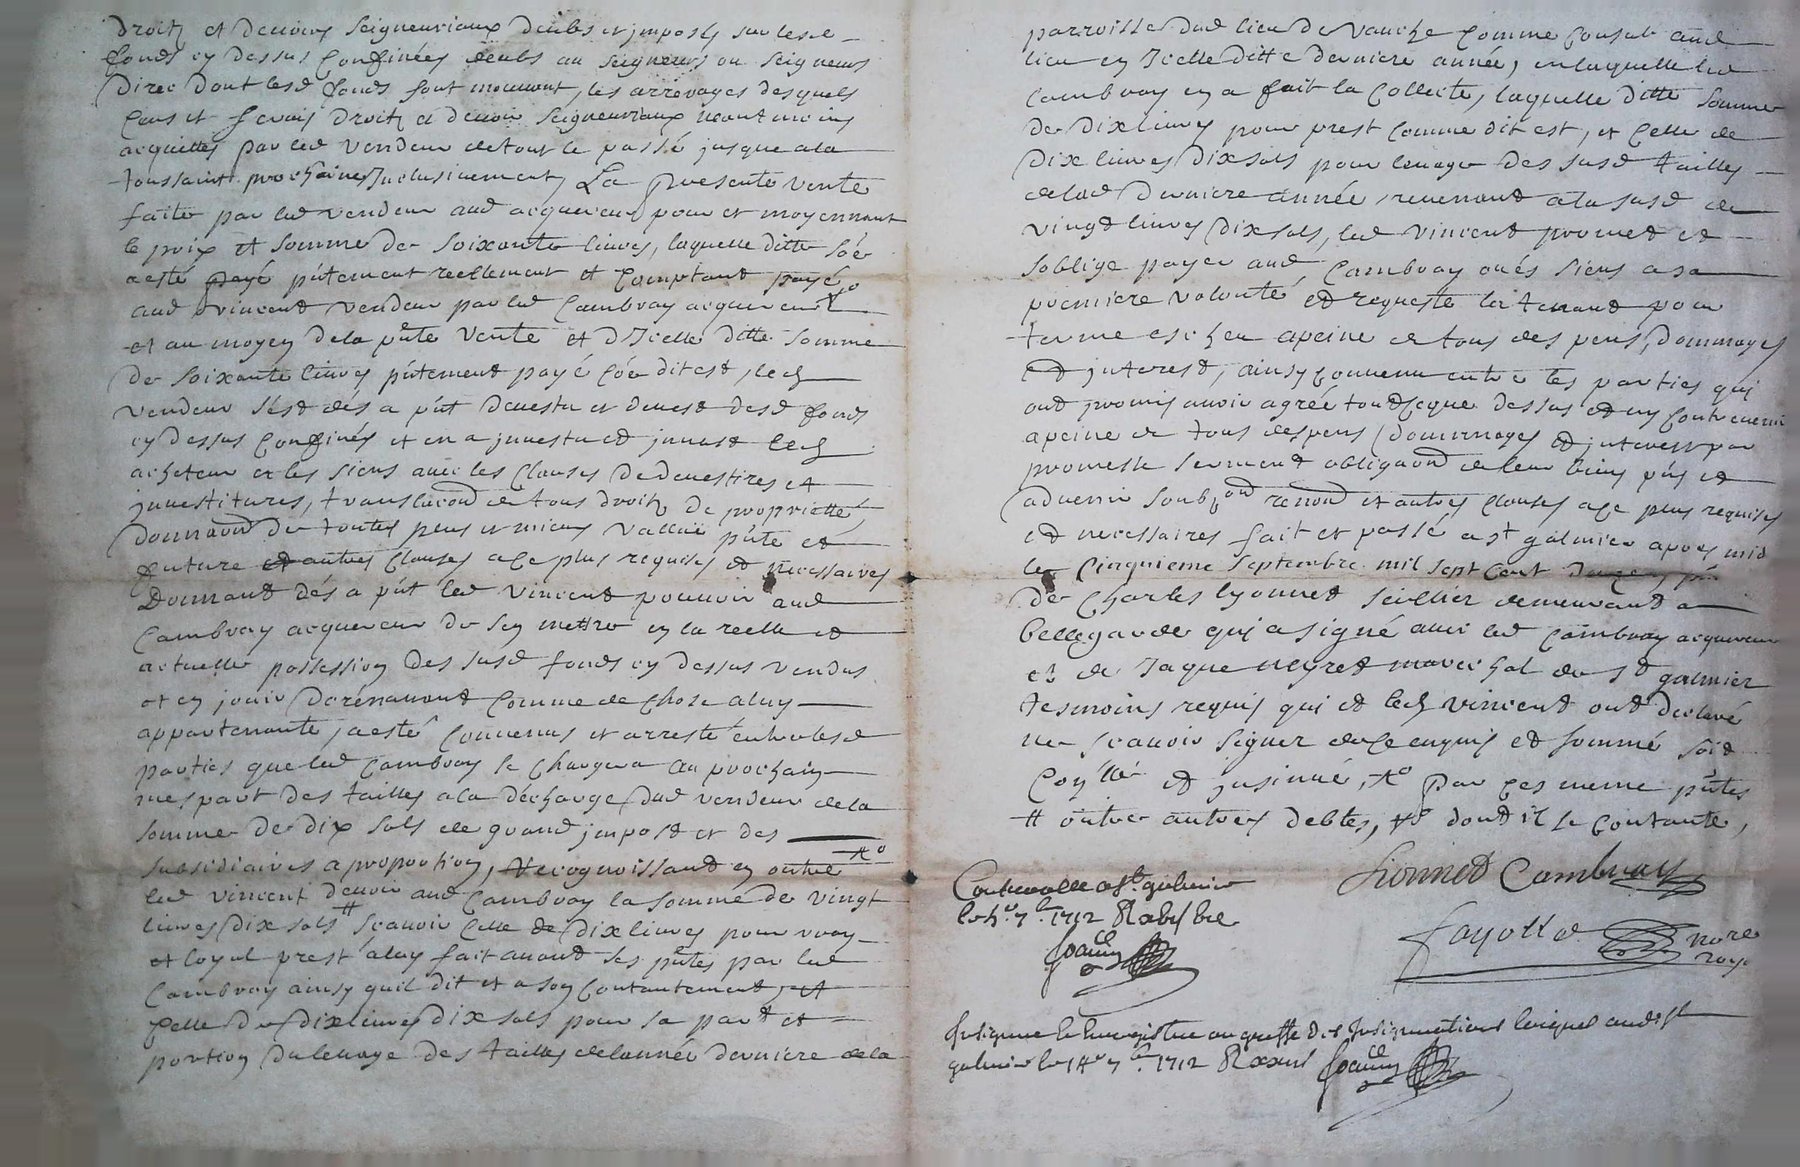 droitz et devoirs seigneuriaux deubs et imposés sur lesd
fonds cy dessus confinées deubs au seigneurs ou seigneurs
direc dont lesd fonds sont mouvant, les arrérages desquels
cens et servis droitz et devoir seigneuriaux neantmoins
acquittés par led vendeur de tout le passé jusque a la
toussaint prochaines Inclusivement, La presente vente
faite par led vendeur aud acquereur pour et moyennant
le prix et somme de soixante livres, laquelle ditte soe
a esté payé pñtement reellement et comptant payé
aud vincent vendeur par led Cambray acquereur
et au moyen de la pñte vente et d'Icelle ditte somme
de soixante livres pñtement payé coe dit est, led
vendeur s'est dés a pñt devestu et devest desd fonds
cy dessus confinés et en a investu et invest led
acheteur et les siens avec les clauses de devestires et
investitures, translaõn de tous droitz de proprietté,
donnaõn de toutes plus et mieux vallue pñte et
future et autres clauses a ce plus requises et necessaires
Donnant dés a pñt led vincent pouvoir aud
Cambray acquereur de s'en mettre en la reelle et
actuelle possession des susd fonds cy dessus vendus
et en jouir dorenavant comme de chose a luy
appartenante, a esté convenus et arresté entre lesd
parties que led Cambray se chargera au prochain
mespart des tailles a la décharge dud vendeur de la
somme de dix sols de grand impost et des
subsidiaires a proportion, Recognoissant en outre
led vincent devoir aud Cambray la somme de vingt
livres dix sols # scavoir celle de dix livres pour vray
et loyal prest a luy fait avant ses pñtes par led
Cambray ainsy qu'il dit et a son contantement, et
celle de dix livres dix sols pour sa part et
portion du levage des tailles de l'année derniere de la
parroisse dud lieu de Vauche comme consul aud
lieu en Icelle ditte derniere année, en laquelle led
Cambray en a fait la collecte, laquelle ditte somme
de dix livres pour prest comme dit est, et celle de
dix livres dix sols pour levage des susd tailles
de lad derniere année, revenant a la susd de
vingt livres dix sols, led vincent promet et
s'oblige payer aud Cambray ou és siens a sa
premiere volonté et requeste le tenant pour
terme escheu a peine de tous despens, dommages
et interest, ainsy convenu entre les parties qui
ont promis avoir agréé tout ce que dessus et ny contrevenir
a peine de tous despens dommages et interest par
promesse serment obligaõn de leur biens pñs et
advenir soubzõn renonõn et autres clauses a ce plus requises
et necessaires fait et passé a st galmier apres midi
le Cinquieme septembre mil sept cent douze, pñt
de Charles lyonnet sellier demeurant a
bellegarde qui a signé avec led Cambray acquereur
et de Jaque neyret marechal de st galmier
tesmoins requis qui et led vincent ont declaré
ne scavoir signer de ce enquis et sommé soit
conllé et insinué, par ces meme pñtes
# outre autres debtes, dont il se contante,
Lionnet Cambray
Controllé a st galmier
le 5e 7bre 1712
fayolle nore
roy
Insinué et enregistré au greffe des Insinuations laiques audit st
galmier le 14e 7bre 1712